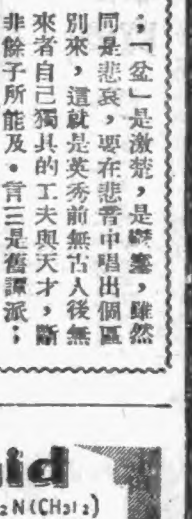 ；「盆」是激楚，是鬱塞，雖然
同是悲哀，要在悲音中唱出個區
別來，這就是英秀前無古人後無
來者自己獨具的工夫與天才，斷
非餘子所能及。言三是舊譚派；
id
₂N(CH₃)₂)